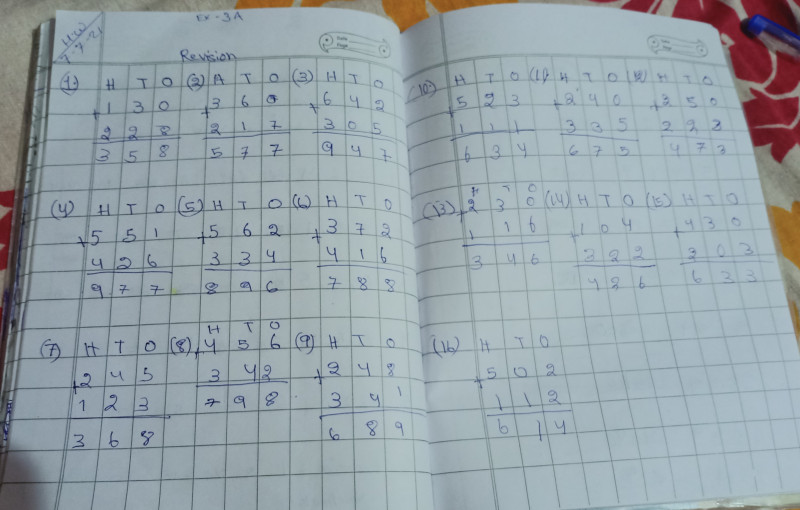 HW
7-7-21
EX-3A
Revision
(1) H T O (2) H T O (3) H T O
+1 3 0 +3 6 0 +6 4 2
2 2 8 2 1 7 3 0 5
3 5 8 5 7 7 9 4 7
(4) H T O (5) H T O (6) H T O
+5 5 1 +5 6 2 +3 7 2
4 2 6 3 3 4 4 1 6
9 7 7 8 9 6 7 8 8
(7) H T O (8) H T O (9) H T O
+2 4 5 +4 5 6 +2 4 8
1 2 3 3 4 2 3 4 1
3 6 8 7 9 8 6 8 9
Date
Page
(10) H T O (11) H T O (12) H T O
+5 2 3 +2 4 0 +2 5 0
1 1 1 3 3 5 2 2 3
6 3 4 6 7 5 4 7 3
(13) H T O (14) H T O (15) H T O
+2 3 0 +1 0 4 +4 3 0
1 1 6 3 2 2 2 0 3
3 4 6 4 2 6 6 3 3
(16) H T O
+5 0 2
1 1 2
6 1 4